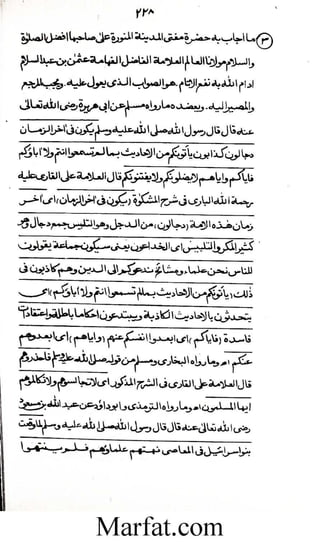 ٢٢٨
٣ ما اجاب به حضرة مفتى المدينة المنورة على صاحبها افضل الصلوة
والسلام مولانا العالم العلامة الفاضل الفهامة عثمٰن بن عبدالسلام
ادام الله به نفع الانام هو الصواب الذى يعول عليه ويجب المرجع
والمصير اليه ويعضده ما رواه مسلم عن ابى هريرة رضى الله تعالى
عنه قال قال رسول الله صلى الله عليه وسلم يكون فى اخر الزمان
دجالون كذابون يأتونكم من الاحاديث بما لم تسمعوا انتم ولا اباؤكم
فاياكم واياهم لا يضلونكم ولا يفتنونكم قال العلامة على القارى عليه
رحمة الله البارى فى شرح المشكوٰة (يكون فى اخر الزمان) اى اخر
زمان هذه الامة (دجالون) من الدجل وهو التلبيس جمع دجال وهو
كثير المكر والتلبيس اى الخداعون يعنى سيكون جماعة يقولون
للناس نحن علماء ومشائخ ندعوكم الى الدين وهم كاذبون فى
ذلك (يأتونكم من الاحاديث بما لم تسمعوا انتم ولا اباؤكم) اى
يتحدثون بالاحاديث الكاذبة ويبتدعون احكاما باطلة واعتقادات
فاسدة (فاياكم) اى ابعدوا انفسكم عنهم (واياهم) اى ابعدوهم
عنكم اھ وما رواه البخارى ومسلم من قوله صلى الله عليه وسلم فاحذروهم
قال العلامة على القارى فى الشرح المذكور اى لا تجالسوهم ولا تكالموهم
ايها المسلمون اھ وما رواه الترمذى وابو داؤد عن عبد الله بن مسعود
رضى الله تعالى عنه قال قال رسول الله صلى الله عليه وسلم لما وقعت
بنو اسرائيل فى المعاصى نهتهم علماؤهم فلم ينتهوا
Marfat.com